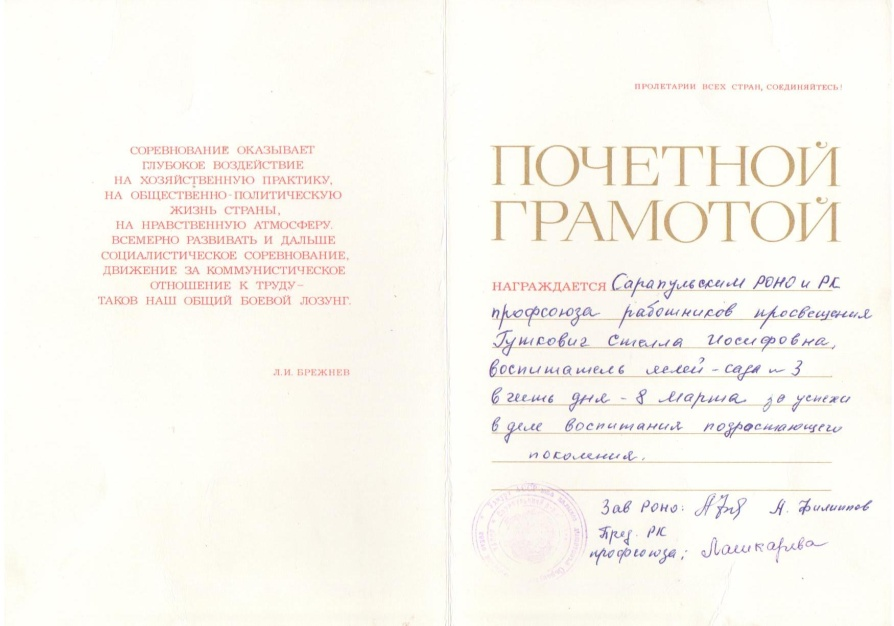 СОРЕВНОВАНИЕ ОКАЗЫВАЕТ
ГЛУБОКОЕ ВОЗДЕЙСТВИЕ
НА ХОЗЯЙСТВЕННУЮ ПРАКТИКУ,
НА ОБЩЕСТВЕННО-ПОЛИТИЧЕСКУЮ
ЖИЗНЬ СТРАНЫ,
НА НРАВСТВЕННУЮ АТМОСФЕРУ.
ВСЕМЕРНО РАЗВИВАТЬ И ДАЛЬШЕ
СОЦИАЛИСТИЧЕСКОЕ СОРЕВНОВАНИЕ,
ДВИЖЕНИЕ ЗА КОММУНИСТИЧЕСКОЕ
ОТНОШЕНИЕ К ТРУДУ–
ТАКОВ НАШ ОБЩИЙ БОЕВОЙ ЛОЗУНГ.
Л.И. БРЕЖНЕВ
ПРОЛЕТАРИИ ВСЕХ СТРАН, СОЕДИНЯЙТЕСЬ!
ПОЧЕТНОЙ
ГРАМОТОЙ
НАГРАЖДАЕТСЯ Сарапульским РОНО и РК
профсоюза работников просвещения
Гушкович Стелла Иосифовна,
воспитатель яслей-сада № 3
в честь дня - 8 Марта за успехи
в деле воспитания подрастающего
поколения.
Зав РОНО: А. Филиппов
Пред. РК
профсоюза: Лашкарёва